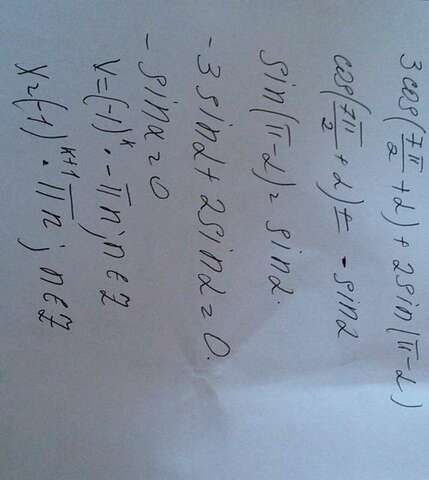 3cos(7π/2 + α) + 2sin(π - α)
cos(7π/2 + α) = - sinα
sin(π - α) = sinα.
- 3 sinα + 2sinα = 0.
- sinα = 0
x = (-1)^k · - πn; n ∈ Z
x = (-1)^{k+1} · πn; n ∈ Z